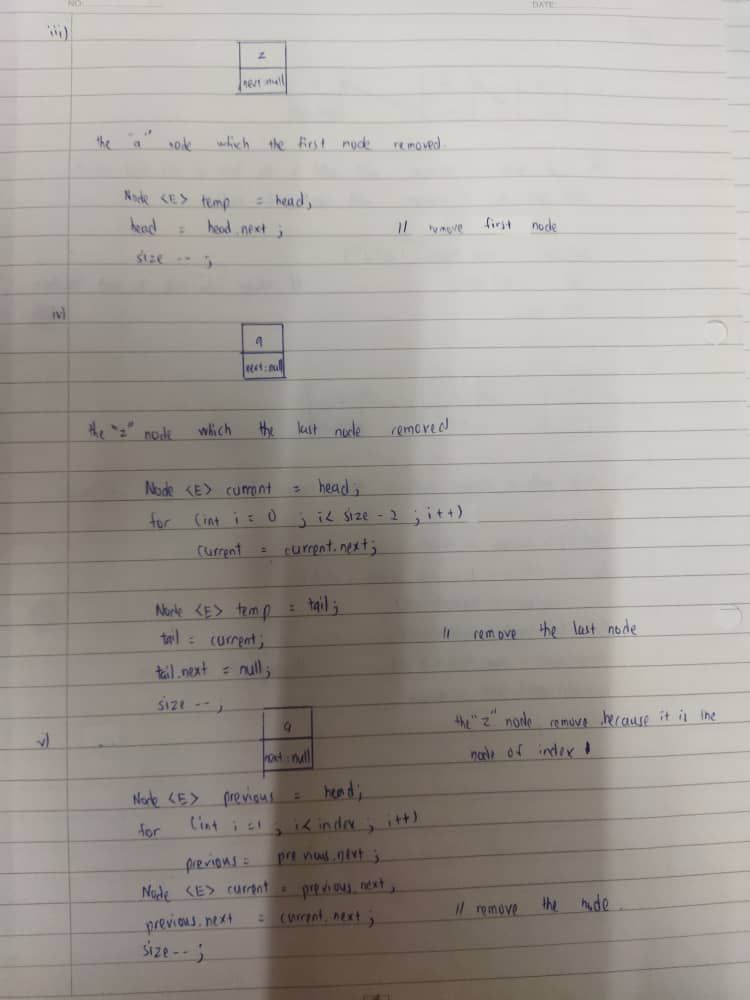 NO
DATE:
iii)
z
next:null
the "a" node which the first node removed.
Node <E> temp = head;
head = head.next; // remove first node
size --;
iv)
a
next:null
the "z" node which the last node removed
Node <E> current = head;
for (int i = 0 ; i < size - 2 ; i++)
current = current.next;
Node <E> temp = tail;
tail = current; // remove the last node
tail.next = null;
size --;
v)
a
next:null
the "z" node remove because it is the
node of index 1
Node <E> previous = head;
for (int i = 1 ; i < index ; i++)
previous = previous.next;
Node <E> current = previous.next;
previous.next = current.next; // remove the node.
size --;